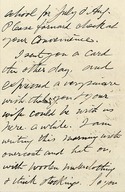 school for July & Aug.
Please forward check at
your convenience.
I sent you a card
the other day, and
expressed a very sincere
wish that you & your
wife could be with us
here a while. I am
writing this morning with
overcoat and hat on,
with woolen underclothing
& thick stockings. So you